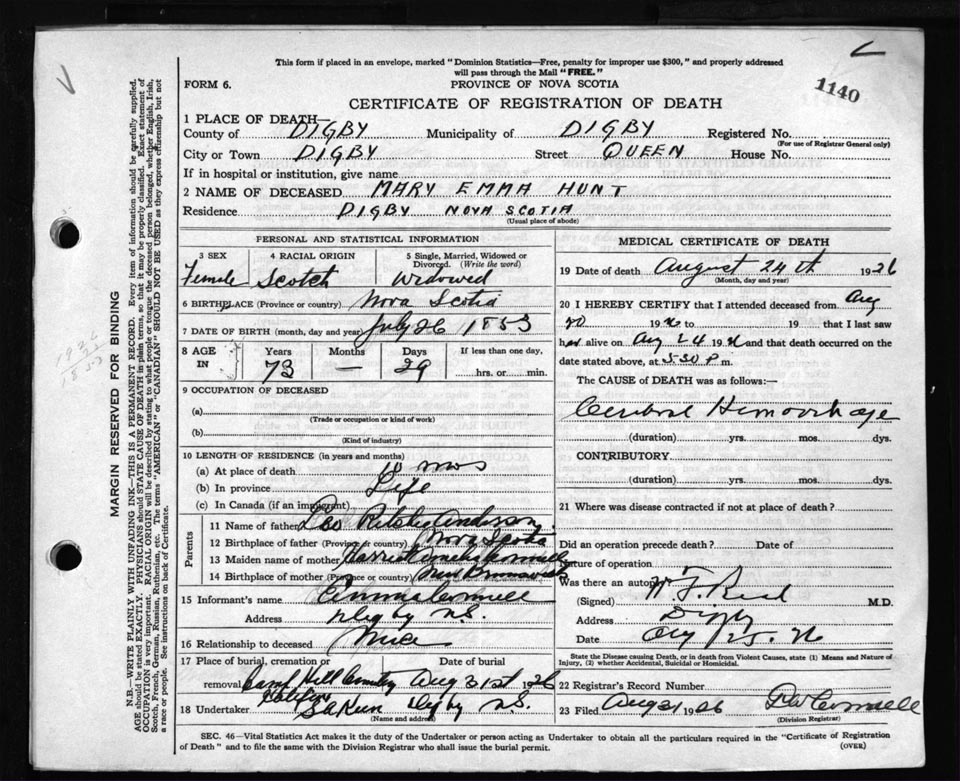 This form if placed in an envelope, marked "Dominion Statistics—Free, penalty for improper use $300," and properly addressed
will pass through the Mail "FREE."
FORM 6.
PROVINCE OF NOVA SCOTIA
1140
CERTIFICATE OF REGISTRATION OF DEATH
1 PLACE OF DEATH—
County of DIGBY Municipality of DIGBY Registered No.
(For use of Registrar General only)
City or Town DIGBY Street QUEEN House No.
If in hospital or institution, give name
2 NAME OF DECEASED MARY EMMA HUNT
Residence DIGBY NOVA SCOTIA
(Usual place of abode)
PERSONAL AND STATISTICAL INFORMATION
3 SEX 4 RACIAL ORIGIN 5 Single, Married, Widowed or
Divorced. (Write the word)
Female Scotch Widowed
6 BIRTHPLACE (Province or country) Nova Scotia
7 DATE OF BIRTH (month, day and year) July 26 1853
8 AGE IN Years Months Days If less than one day,
73 — 29 hrs. or min.
9 OCCUPATION OF DECEASED
(a)
(Trade or occupation or kind of work)
(b)
(Kind of industry)
10 LENGTH OF RESIDENCE (in years and months)
(a) At place of death 10 mos
(b) In province Life
(c) In Canada (if an immigrant)
Parents
11 Name of father Ritchie Anderson
12 Birthplace of father (Province or country) Nova Scotia
13 Maiden name of mother
14 Birthplace of mother (Province or country) New Brunswick
15 Informant's name
Address Digby N.S.
16 Relationship to deceased Niece
17 Place of burial, cremation or Date of burial
removal Camp Hill Cemetery Aug 31st 1926
Halifax
18 Undertaker Digby N.S.
(Name and address)
MEDICAL CERTIFICATE OF DEATH
19 Date of death August 24th 1926
(Month, day and year)
20 I HEREBY CERTIFY that I attended deceased from Aug
20 1926 to 19 that I last saw
her alive on Aug 24 1926 and that death occurred on the
date stated above, at 5.30 P m.
The CAUSE of DEATH was as follows:—
Cerebral Hemorrhage
(duration) yrs. mos. dys.
CONTRIBUTORY
(duration) yrs. mos. dys.
21 Where was disease contracted if not at place of death?
Did an operation precede death? Date of
Nature of operation
Was there an autopsy
(Signed) M.D.
Address Digby
Date Aug 25. 26
State the Disease causing Death, or in death from Violent Causes, state (1) Means and Nature of
Injury, (2) whether Accidental, Suicidal or Homicidal.
22 Registrar's Record Number
23 Filed Aug 31 1926
(Division Registrar)
SEC. 46—Vital Statistics Act makes it the duty of the Undertaker or person acting as Undertaker to obtain all the particulars required in the "Certificate of Registration
of Death" and to file the same with the Division Registrar who shall issue the burial permit. (OVER)
MARGIN RESERVED FOR BINDING
N.B.—WRITE PLAINLY WITH UNFADING INK—THIS IS A PERMANENT RECORD. Every item of information should be carefully supplied.
AGE should be stated EXACTLY. PHYSICIANS should STATE CAUSE OF DEATH in plain terms, so that it may be properly classified. Exact statement of
OCCUPATION is very important. RACIAL ORIGIN will be described by stating to what people or tongue the deceased person belonged, whether English, Irish,
Scotch, French, German, Russian, Ruthenian, etc. The terms "AMERICAN" or "CANADIAN" SHOULD NOT BE USED as they express citizenship but not
a race or people. See instructions on back of Certificate.
1926
1853